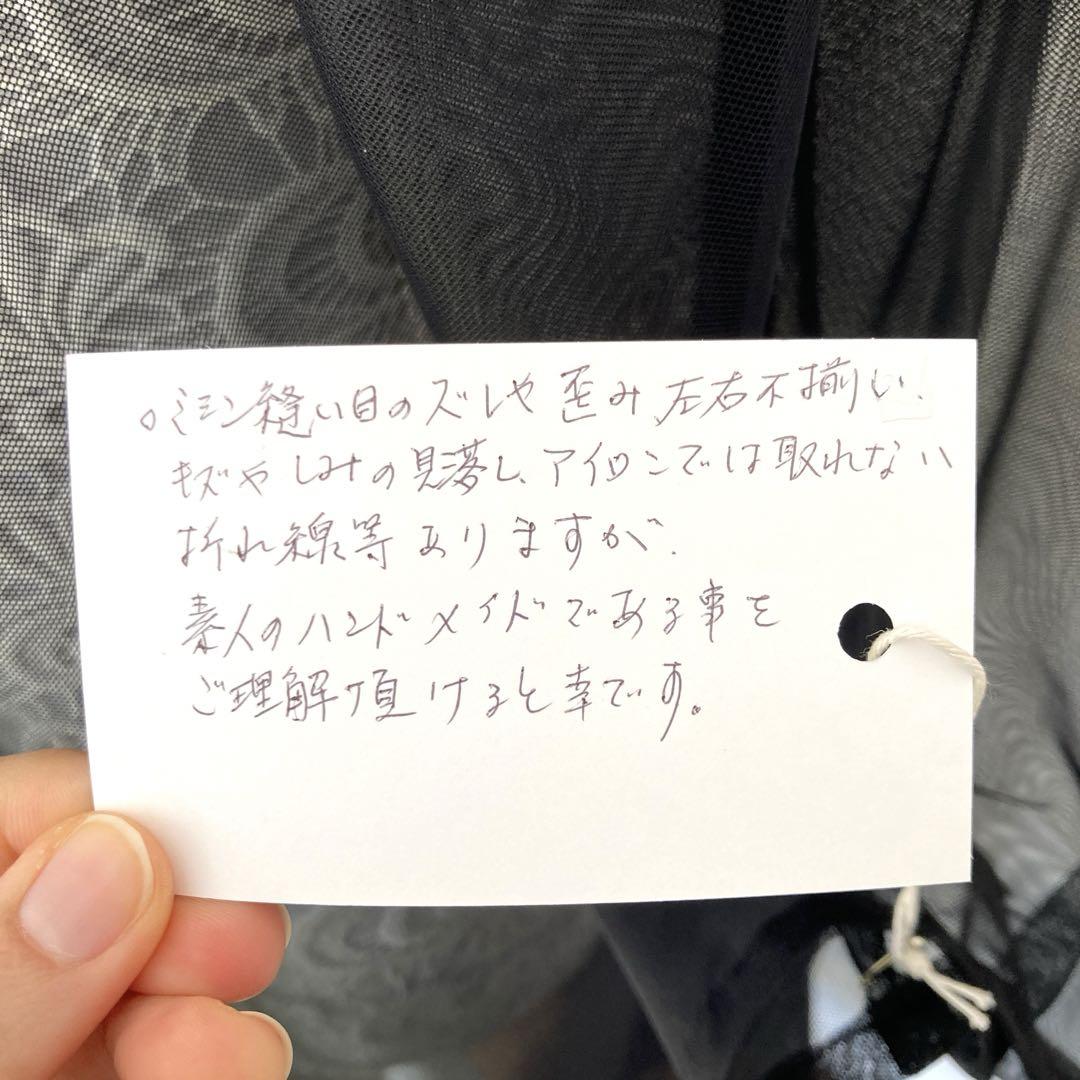 ○ミシン縫い目のズレや歪み、左右不揃い、
キズやしみの見落し、アイロンでは取れない
折れ線等ありますが、
素人のハンドメイドである事を
ご理解頂けると幸です。